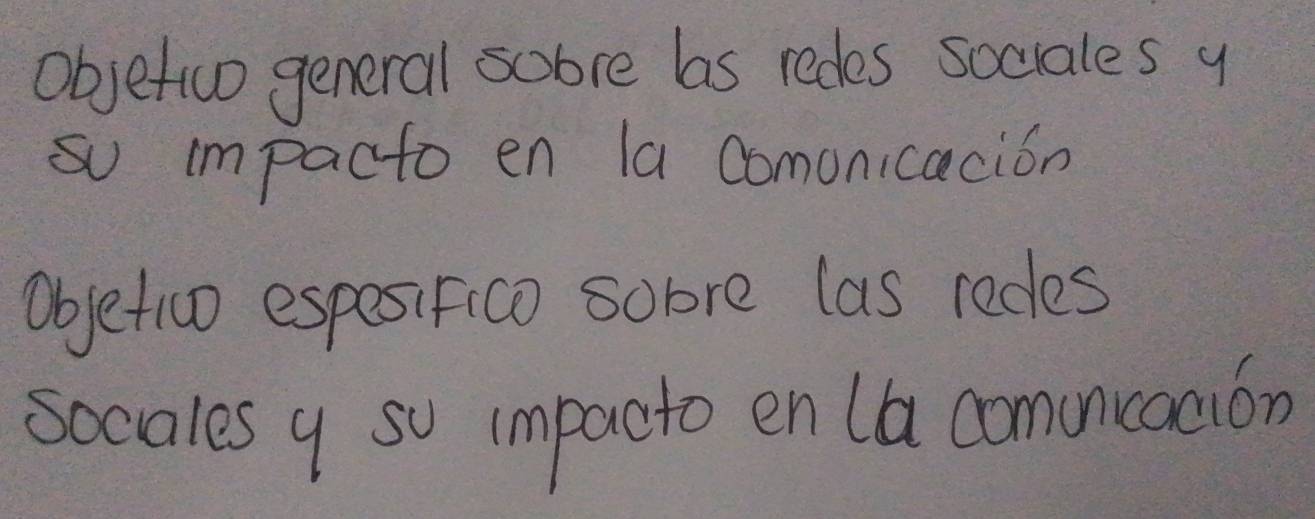 Objetivo general sobre las redes sociales y
su impacto en la comonicación
Objetivo espesifico sobre las redes
sociales y su impacto en la comunicación